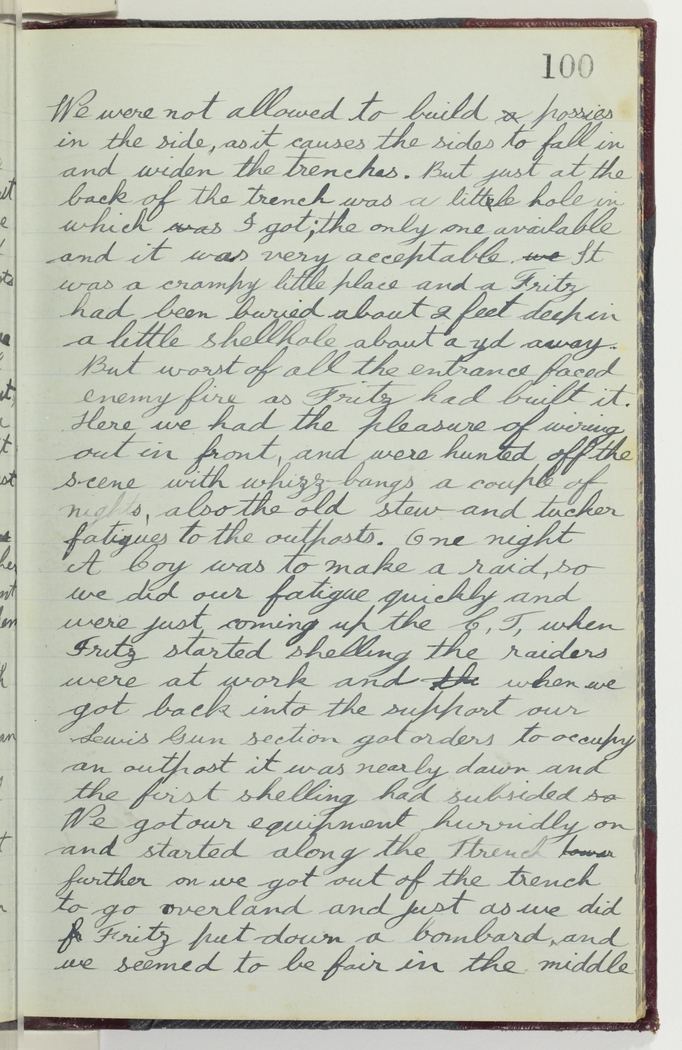 100
We were not allowed to build a possies
in the side, as it causes the sides to fall in
and widen the trenches. But just at the
back of the trench was a little hole in
which was I got; the only one available
and it was very acceptable. we It
was a crampy little place and a Fritz
had been buried about 2 feet deep in
a little shellhole about a yd away.
But worst of all the entrance faced
enemy fire as Fritz had built it.
Here we had the pleasure of wiring
out in front, and were hunted off the
scene with whizz-bangs a couple of
nights, also the old stew and tucker
fatigues to the outposts. One night
A Coy was to make a raid, so
we did our fatigue quickly and
were just coming up the C, T, when
Fritz started shelling the raiders
were at work and the when we
got back into the support our
Lewis Gun section got orders to occupy
an outpost it was nearly dawn and
the first shelling had subsided so
We got our equipment hurridly on
and started along the Ttrench
further on we got out of the trench
to go overland and just as we did
f Fritz put down a bombard, and
we seemed to be fair in the middle